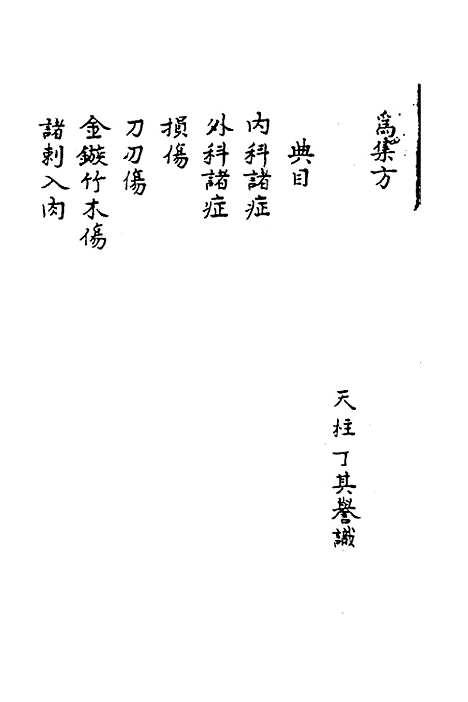 為集方
天柱丁其譽識
典目
內科諸症
外科諸症
損傷
刀刃傷
金鏃竹木傷
諸刺入肉